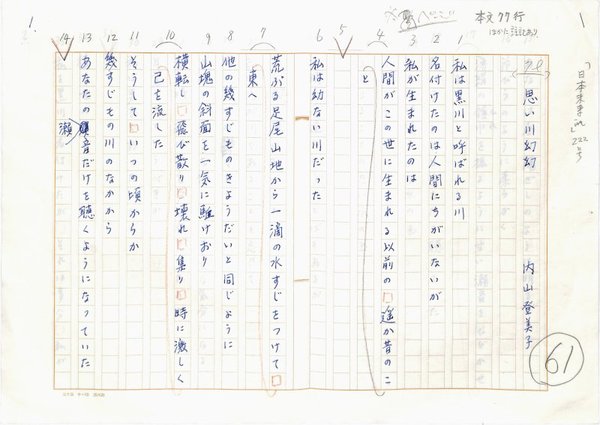 本文77行
「日本未来派」222号
思い川幻幻
内山登美子
61
1 私は黒川と呼ばれる川
2 名付けたのは人間にちがいないが
3 私が生まれたのは
4 人間がこの世に生まれる以前の□遥か昔のこ
と
5
6 私は幼ない川だった
7 荒ぶる足尾山地から一滴の水すじをつけて□
東へ
8 他の幾すじものきょうだいと同じように
9 山塊の斜面を一気に駈けおり
10 横転し□飛び散り□壊れ□集り□時に激しく
己を流した
11 そうして□いつの頃からか
12 幾すじもの川のなかから
13 あなたの瀬音だけを聴くようになっていた
14